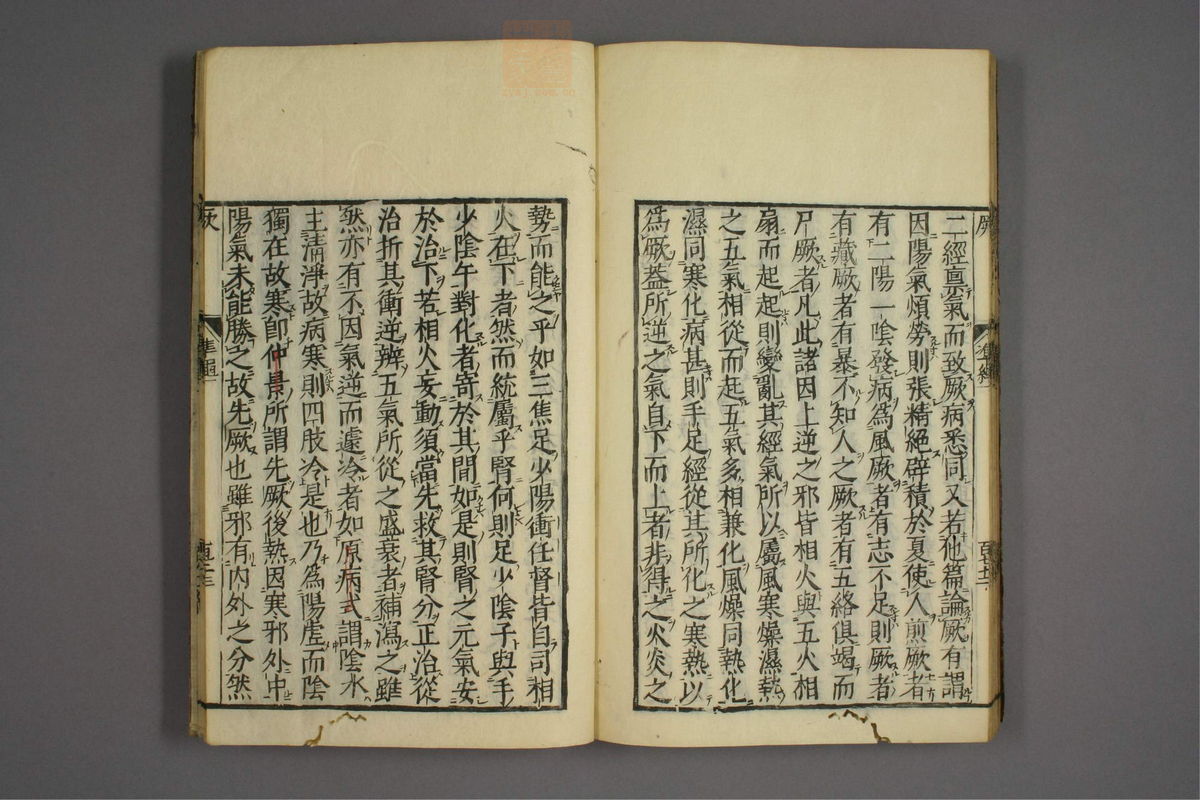 二經禀氣而致厥病悉同又若他篇論厥有謂
因陽氣煩勞則張精絕辟積於夏使人煎厥者
有二陽一陰發病爲風厥者有志不足則厥者
有藏厥者有暴不知人之厥者有五絡俱竭而
尸厥者凡此諸因上逆之邪皆相火與五火相
扇而起起則變亂其經氣所以屬風寒燥濕熱
之五氣相從而起五氣多相兼化風燥同熱化
濕同寒化病甚則手足經從其所化之寒熱以
爲厥蓋所逆之氣自下而上者非得之火炎之
勢而能之乎如三焦足少陽衝任督皆自司相
火在下者然而統屬乎腎何則足少陰子與手
少陰午對化者寄於其間如是則腎之元氣安
於治下若相火妄動須當先救其腎分正治從
治折其衝逆辨五氣所從之盛衰者補瀉之雖
然亦有不因氣逆而遽冷者如原病式謂陰水
主清淨故病寒則四肢冷是也乃爲陽虛而陰
獨在故寒卽仲景所謂先厥後熱因寒邪外中
陽氣未能勝之故先厥也雖邪有内外之分然